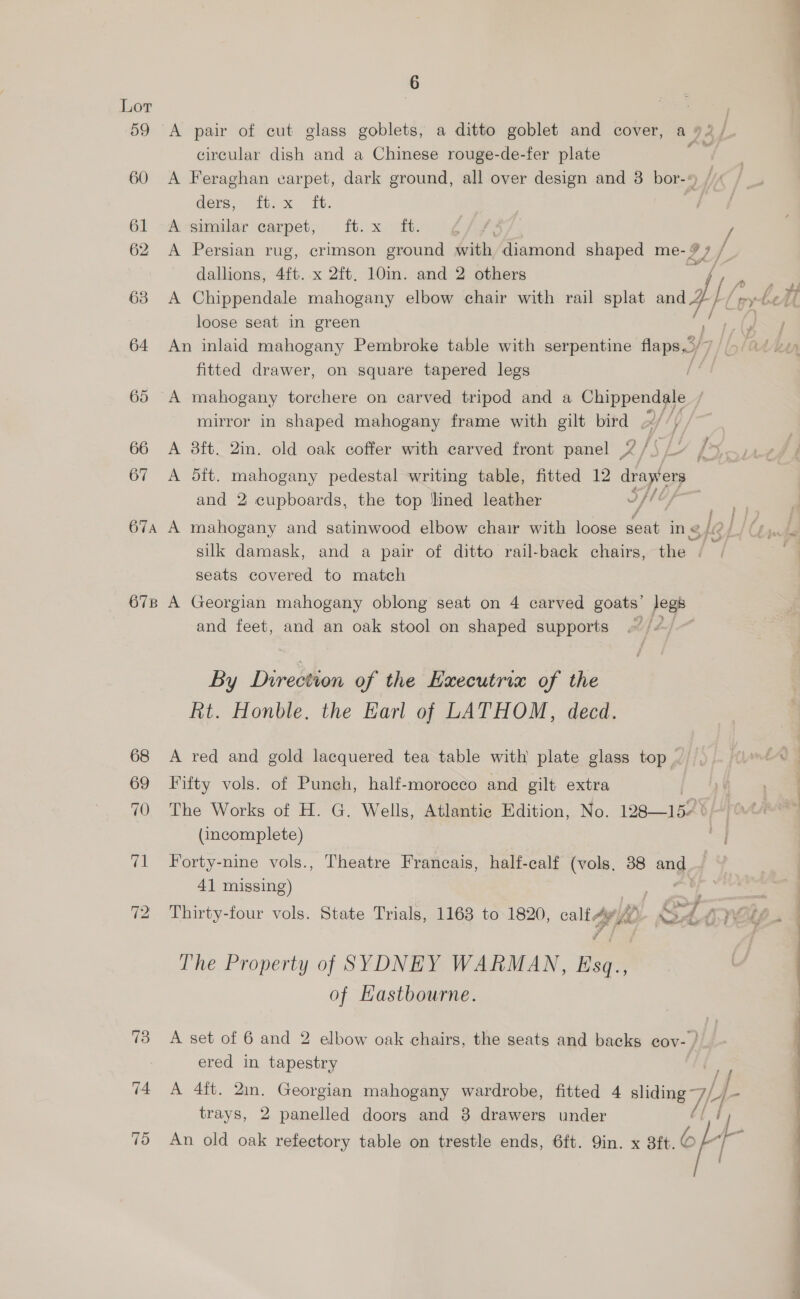 6
Lot
59 A pair of cut glass goblets, a ditto goblet and cover, a
circular dish and a Chinese rouge-de-fer plate
60 A Feraghan carpet, dark ground, all over design and 3 bor-
ders, ft. x ft.
61 A similar carpet, ft. x ft.
62 A Persian rug, crimson ground with diamond shaped me-
dallions, 4ft. x 2ft. 10in. and 2 others
63 A Chippendale mahogany elbow chair with rail splat and
loose seat in green
64 An inlaid mahogany Pembroke table with serpentine flaps,
fitted drawer, on square tapered legs
65 A mahogany torchere on carved tripod and a Chippendale
mirror in shaped mahogany frame with gilt bird
66 A 3ft. 2in. old oak coffer with carved front panel
67 A 5ft. mahogany pedestal writing table, fitted 12 drawers
and 2 cupboards, the top lined leather
67A A mahogany and satinwood elbow chair with loose seat in
silk damask, and a pair of ditto rail-back chairs, the
seats covered to match
67B A Georgian mahogany oblong seat on 4 carved goats' legs
and feet, and an oak stool on shaped supports
By Direction of the Executrix of the
Rt. Honble. the Earl of LATHOM, decd.
68 A red and gold lacquered tea table with plate glass top
69 Fifty vols. of Punch, half-morocco and gilt extra
70 The Works of H. G. Wells, Atlantic Edition, No. 128—15
(incomplete)
71 Forty-nine vols., Theatre Francais, half-calf (vols. 38 and
41 missing)
72 Thirty-four vols. State Trials, 1163 to 1820, calf
The Property of SYDNEY WARMAN, Esq.,
of Eastbourne.
73 A set of 6 and 2 elbow oak chairs, the seats and backs cov-
ered in tapestry
74 A 4ft. 2in. Georgian mahogany wardrobe, fitted 4 sliding
trays, 2 panelled doors and 3 drawers under
75 An old oak refectory table on trestle ends, 6ft. 9in. x 3ft.